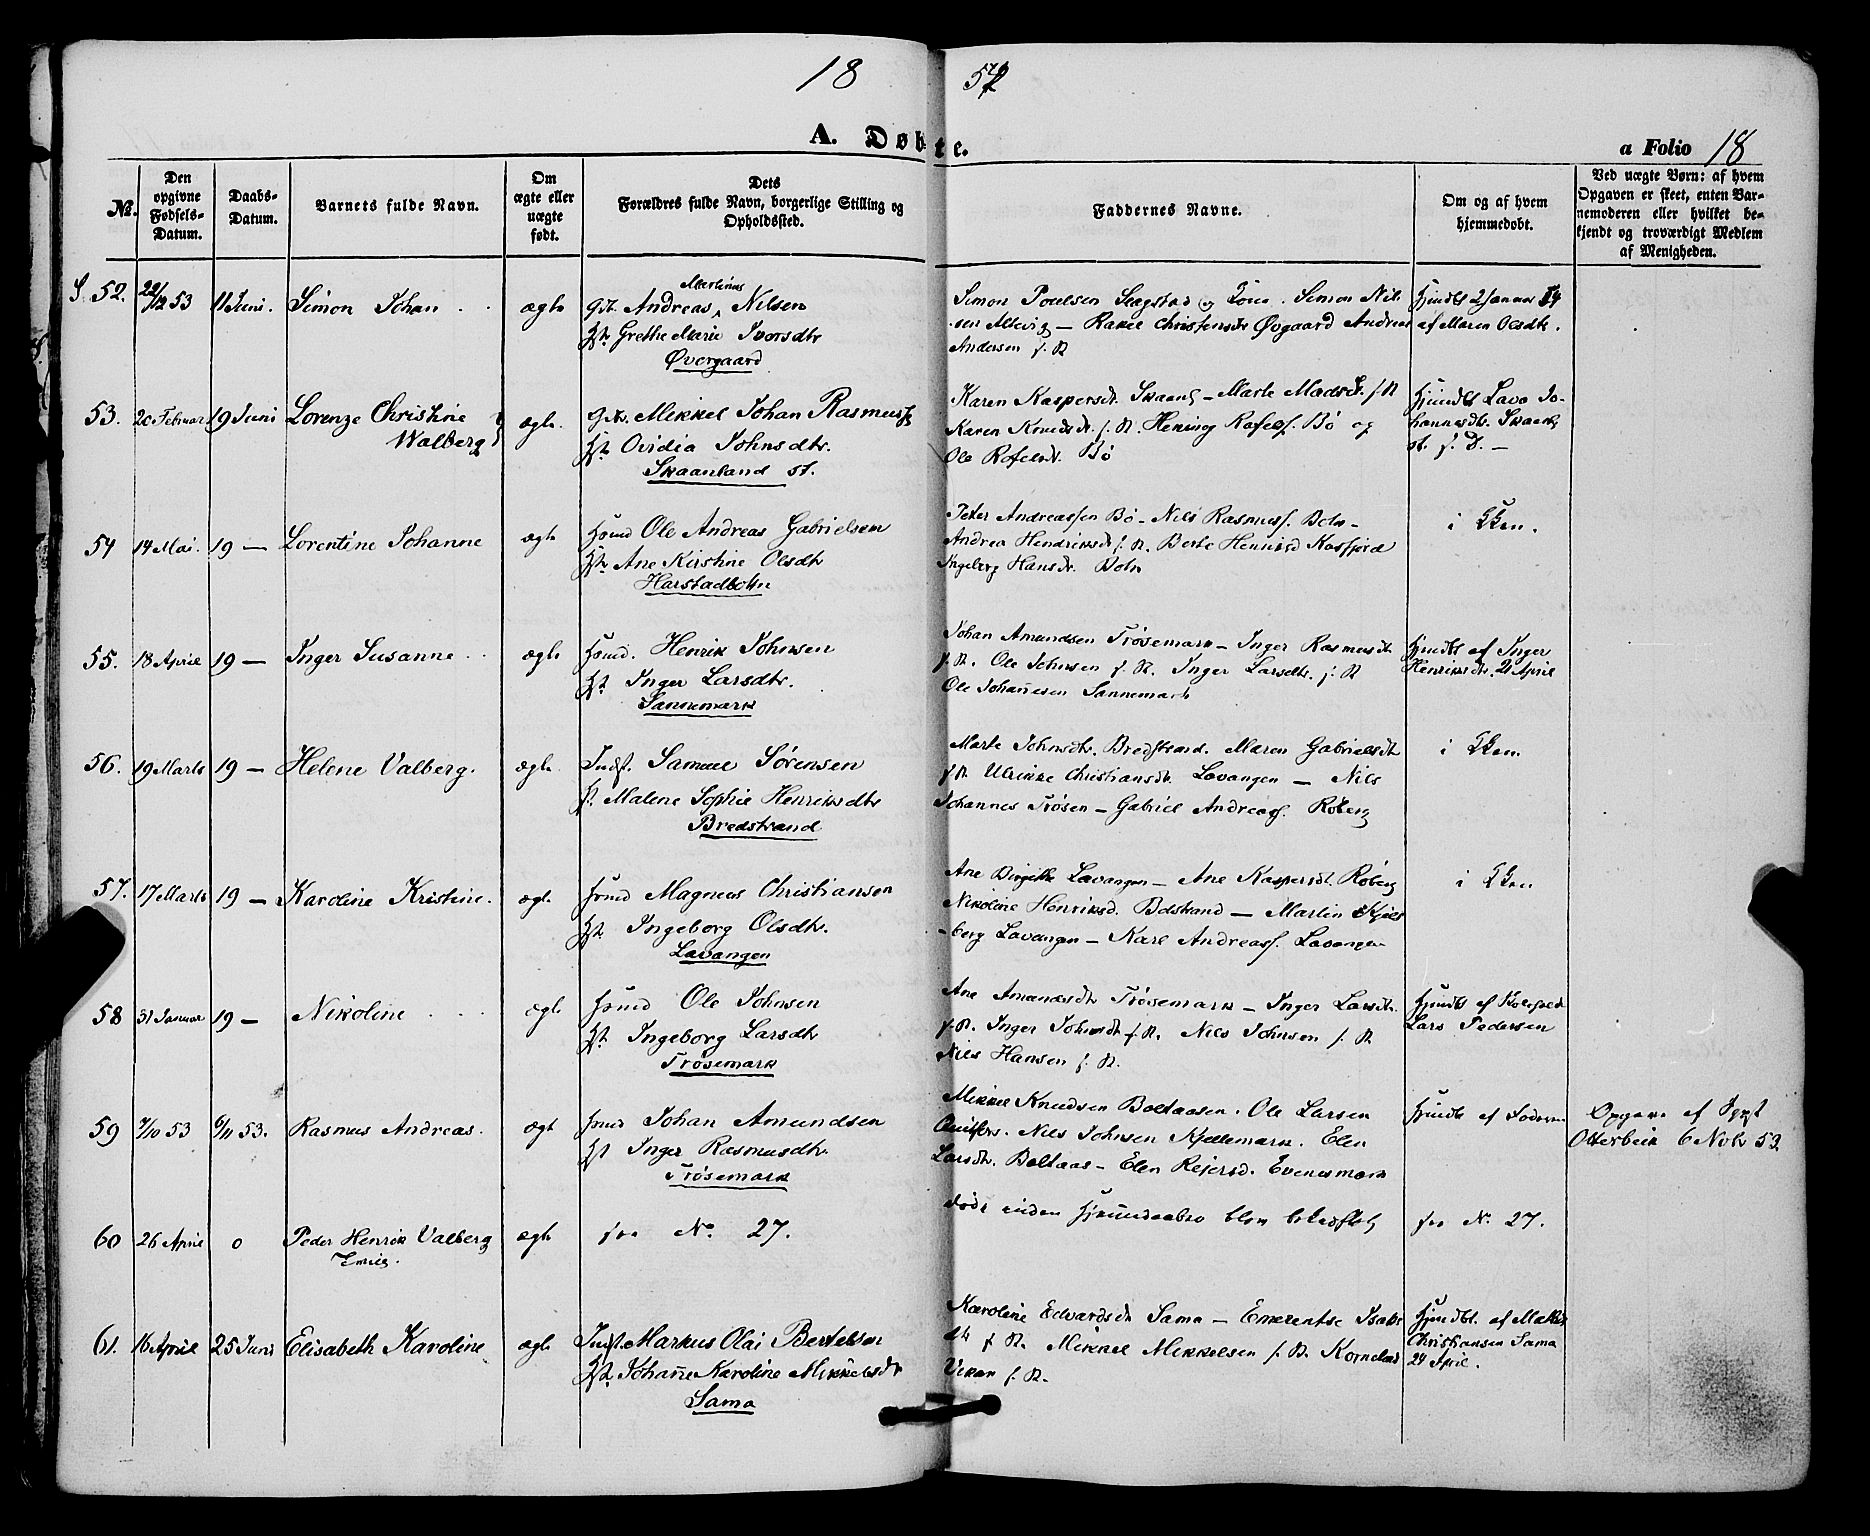 18 54
A. Døbte.
a Folio 18
No.
Den opgivne Fødsels-Datum.
Daabs-Datum.
Barnets fulde Navn.
Om ægte eller uægte født.
Dets Forældres fulde Navn, borgerlige Stilling og Opholdssted.
Faddernes Navne.
Om og af hvem hjemmedøbt.
Ved uægte Børn: af hvem Opgaven er skeet, enten Barnemoderen eller hvilket bekjendt og troværdigt Medlem af Menigheden.
S. 52. 22/12 53 11 Juni. Simon Johan ægte
Martinus
Gbr. Andreas Nilsen
Grethe Marie Iversdtr
Øvergaard
Simon Poulsen Slagstad og Kone. Simon Nil-
sen Altevig — Rakel Christensdtr Øvgaard Andreas
Andersen f. R
2 Januar 54
af Maren Olsdtr.
53. 20 Februar 19 Juni Lorenze Christine
Walberg
ægte.
Mikkel Johan Rasmuss
Ovidia Johnsdtr.
Skaanland st.
Karen Kaspersdtr. Skaanl — Marte Madsdtr f. R
Karen Knudsdtr f. R. Hening Rafels. Bø og
Ole Rafelsdtr. Bø
Hjmdbt Lava Jo-
hannesdtr. Skaanl
st. f. D. —
54 14 Mai. 19 — Lorentine Johanne ægte
Hsmd Ole Andreas Gabrielsen
Ane Kirstine Olsdtr
Harstadbotn
Peter Andreassen Bø — Nils Rasmuss. Botn —
Andrea Hendriksdtr f. R. Berte Henriksd Kasfjord
Ingeberg Hansdtr. Botn
i Kken.
55. 18 April 19 — Inger Susanne ægte
Hsmd. Henrik Johnsen
Inger Larsdtr.
Sannemark
Johan Amundsen Trøsemark — Inger Rasmusdtr
f. R. Ole Johnsen f. R. Inger Larsdtr. f. R
Ole Johannesen Sannemark
Hjmdbt af Inger
Henriksdtr. 21 April
56. 19 Marts 19 — Helene Valberg. ægte
Indf. Samuel Sørensen
Malene Sophie Henriksdtr
Bredstrand
Marte Johnsdtr. Bredstrand. Maren Gabrielsdtr
f. R Ulrikke Christiansdtr Lavangen — Nils
Johannes Trøsen — Gabriel Andreass. Røberg
i Kken.
57. 17 Marts 19 — Karoline Kristine. ægte
Hsmd Magnus Christiansen
Ingeborg Olsdtr.
Lavangen
Ane Birgitte Lavangen — Ane Kaspersdt. Røberg
Nikoline Henriksd. Bdstrand — Martin Kjels-
berg Lavangen — Karl Andreass. Lavangen
i Kken
58 31 Januar 19 — Nikoline ægte
Hsmd Ole Johnsen
Ingeborg Larsdtr
Trøsemark
Ane Amundsdtr Trøsemark — Inger Larsdtr.
f. R. Inger Johnsdtr f. R. Nils Johnsen f. R
Nils Hansen f. R.
Hjmdbt af
Lars Pedersen
59 7/10 53 6/11 53. Rasmus Andreas. ægte
Hsmd Johan Amundsen
Inger Rasmusdtr.
Trøsemark
Mikkel Knudsen Boltaasen. Ole Larsen
Nils Johnsen Kjellemark. Elen
Larsdtr. Boltaas — Elen Rejersd. Evenesmark
Hjmdbt af Faderen
Opgave af
Otterbeck 6 Nobr 53
60 26 April 0 Peder Henrik Valberg
Emil.
ægte
see No 27.
see No 27.
61. 16 April 25 Juni Elisabeth Karoline ægte
Indf. Markus Olai Bertelsen
Johanne Karoline Mikkelsdtr
Sama
Karoline Edvardsdtr Sama — Emerentse Isaks-
dtr f. R. Mikkel Mikkelsen f. R. Kornelius
f. R.
Hjmdbt. af
Christiansen Sama
24 April.